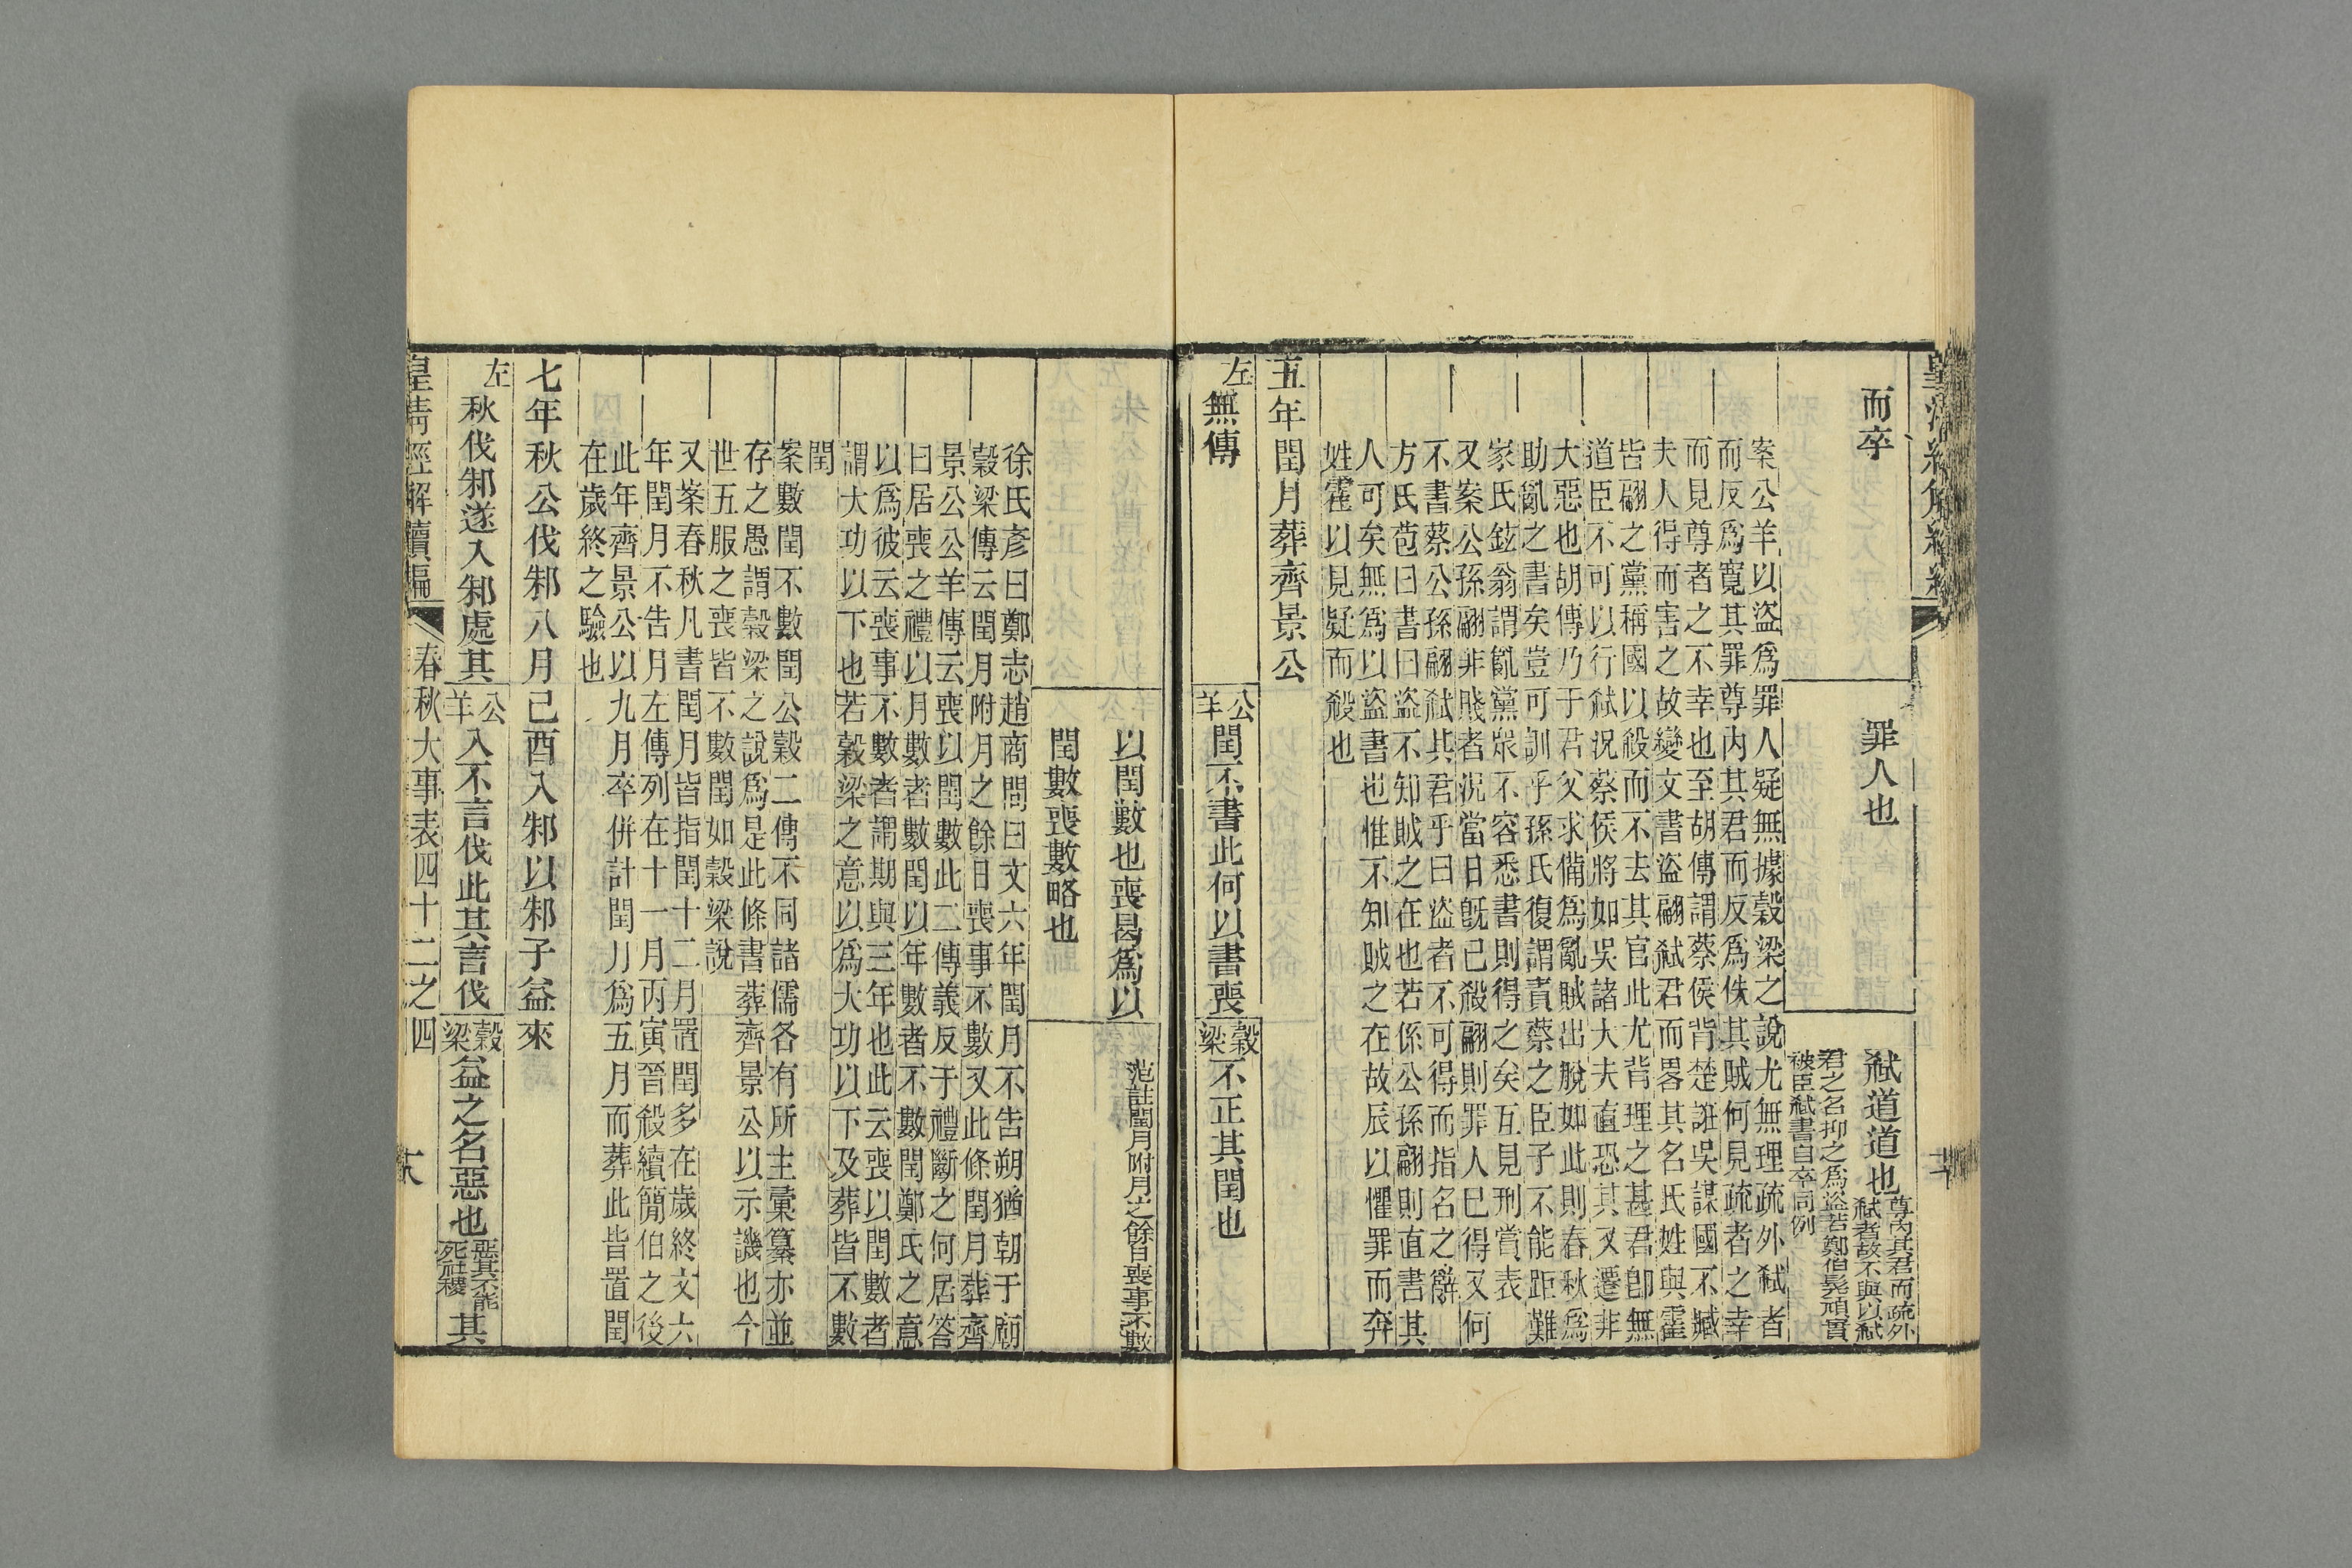 而卒
罪人也
弑道道也尊內其君而疏外弑者故不與以弑
君之名抑之爲盜若鄭伯髡頑實被臣弑書自卒同例
案公羊以盜爲罪人疑無據穀梁之說尤無理疏外弑者
而反爲寬其罪尊内其君而反爲佚其賊何見疏者之幸
而見尊者之不幸也至胡傳謂蔡侯背楚誑吳謀國不臧
夫人得而害之故變文書盜翩弑君而畧其名氏姓與霍
皆翩之黨稱國以殺而不去其官此尤背理之甚君卽無
道臣不可以行弑況蔡侯將如吳諸大夫直恐其又遷非
大惡也胡傳乃于君父求備爲亂賊出脫如此則春秋爲
助亂之書矣豈可訓乎孫氏復謂責蔡之臣子不能距難
家氏鉉翁謂亂黨眾不容悉書則得之矣互見刑賞表
又案公孫翩非賤者況當日旣已殺翩則罪人已得又何
不書蔡公孫翩弑其君乎曰盜者不可得而指名之辭
方氏苞曰書曰盜不知賊之在也若係公孫翩則直書其
人可矣無爲以盜書也惟不知賊之在故辰以懼罪而奔
姓霍以見疑而殺也
五年閏月葬齊景公
左無傳
公羊閏不書此何以書喪
穀梁不正其閏也
以閏數也喪曷爲以
閏數喪數略也
范註閏月附月之餘日喪事不數
徐氏彥曰鄭志趙商問曰文六年閏月不告朔猶朝于廟
穀梁傳云閏月附月之餘日喪事不數又此條閏月葬齊
景公公羊傳云喪以閏數此二傳義反于禮斷之何居答
曰居喪之禮以月數者數閏以年數者不數閏鄭氏之意
以爲彼云喪事不數者謂期與三年也此云喪以閏數者
謂大功以下也若穀梁之意以爲大功以下及葬皆不數
閏
案數閏不數閏公穀二傳不同諸儒各有所主彙纂亦並
存之愚謂穀梁之說爲是此條書葬齊景公以示譏也今
世五服之喪皆不數閏如穀梁說
又案春秋凡書閏月皆指閏十二月置閏多在歲終文六
年閏月不告月左傳列在十一月丙寅晉殺續簡伯之後
此年齊景公以九月卒併計閏月爲五月而葬此皆置閏
在歲終之驗也
七年秋公伐邾八月己酉入邾以邾子益來
左秋伐邾遂入邾處其
公羊入不言伐此其言伐
穀梁益之名惡也惡其不能死社稷其
皇清經解續編
春秋大事表四十二之四